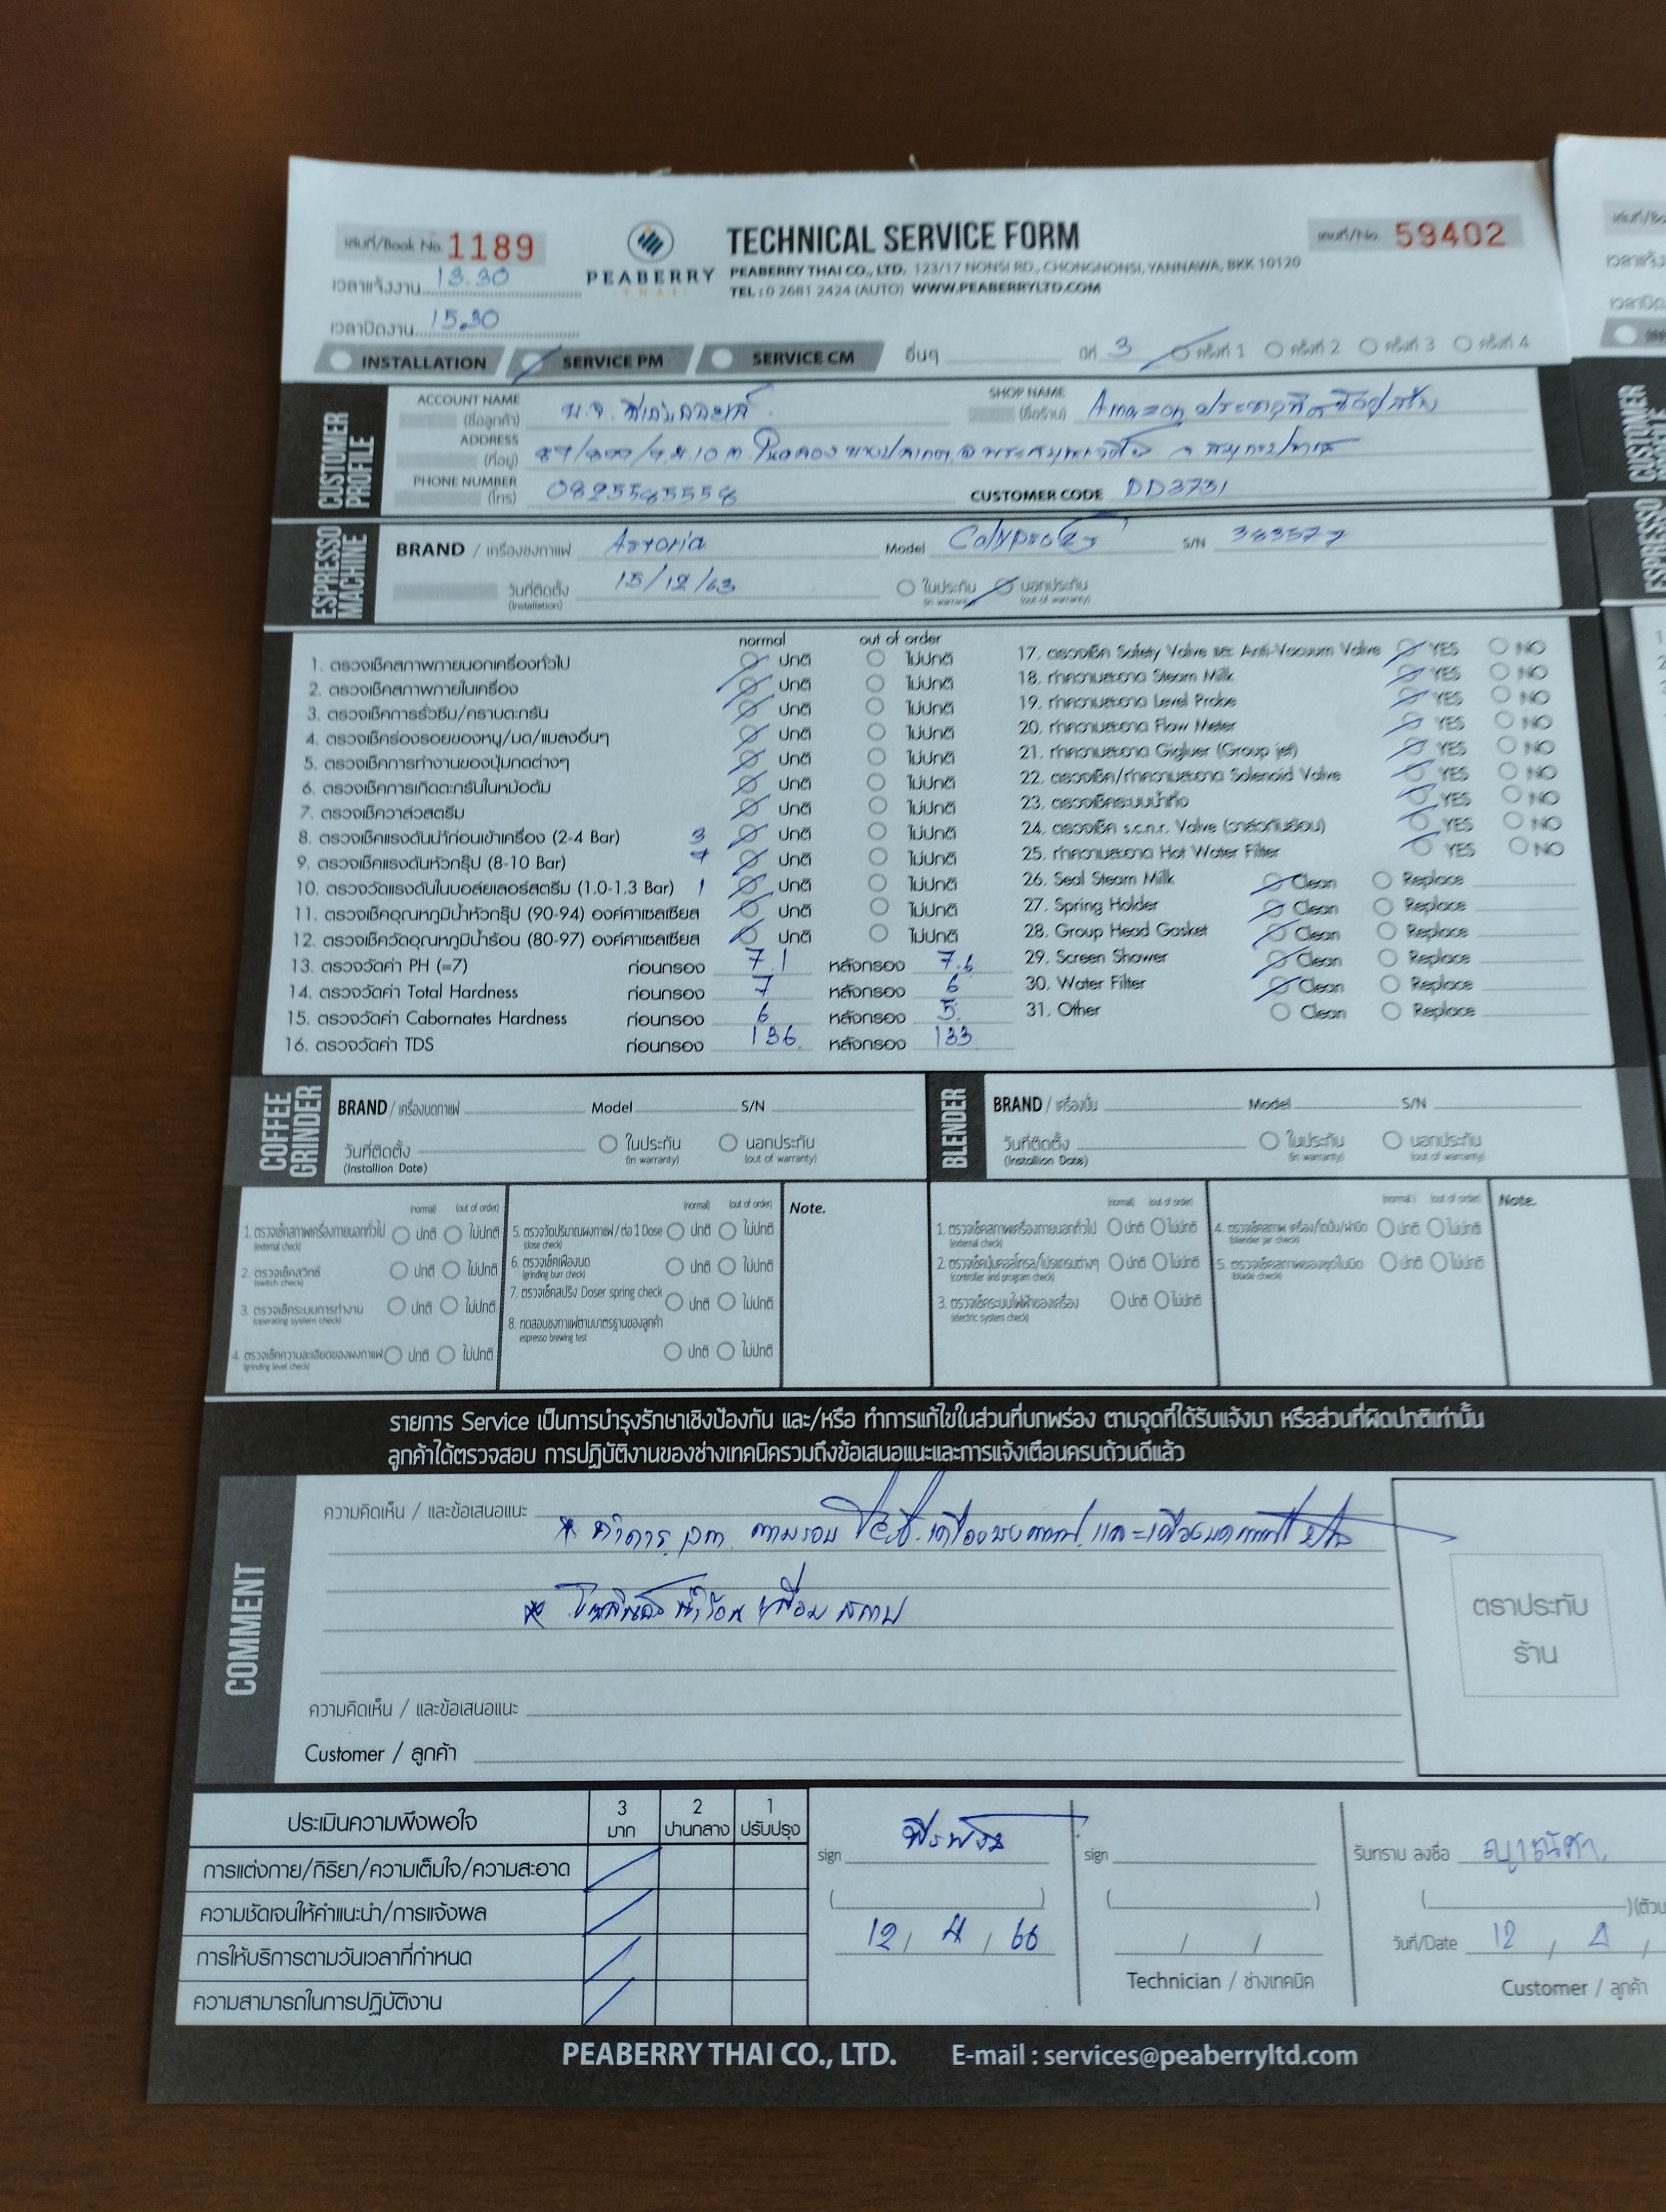 เล่มที่/Book No. 1189
PEABERRY
THAI
TECHNICAL SERVICE FORM
เลขที่/No. 59402
PEABERRY THAI CO., LTD. 123/17 NONSI RD., CHONGNONSI, YANNAWA, BKK 10120
TEL : 0 2681 2424 (AUTO) WWW.PEABERRYLTD.COM
เวลาแจ้งงาน 13.30
เวลาปิดงาน 15.30
INSTALLATION SERVICE PM SERVICE CM อื่นๆ ปีที่ 3 ครั้งที่ 1 ครั้งที่ 2 ครั้งที่ 3 ครั้งที่ 4
CUSTOMER PROFILE
ACCOUNT NAME (ชื่อลูกค้า)
SHOP NAME (ชื่อร้าน) Amazon
ADDRESS (ที่อยู่)
PHONE NUMBER (โทร)
CUSTOMER CODE DD3731
ESPRESSO MACHINE
BRAND / เครื่องชงกาแฟ Astoria Model S/N 383577
วันที่ติดตั้ง (Installation) 15/12/63 ในประกัน (in warranty) นอกประกัน (out of warranty)
normal out of order
1. ตรวจเช็คสภาพภายนอกเครื่องทั่วไป ปกติ ไม่ปกติ
2. ตรวจเช็คสภาพภายในเครื่อง ปกติ ไม่ปกติ
3. ตรวจเช็คการรั่วซึม/คราบตะกรัน ปกติ ไม่ปกติ
4. ตรวจเช็คร่องรอยของหนู/มด/แมลงอื่นๆ ปกติ ไม่ปกติ
5. ตรวจเช็คการทำงานของปุ่มกดต่างๆ ปกติ ไม่ปกติ
6. ตรวจเช็คการเกิดตะกรันในหม้อต้ม ปกติ ไม่ปกติ
7. ตรวจเช็ควาล์วสตรีม ปกติ ไม่ปกติ
8. ตรวจเช็คแรงดันน้ำก่อนเข้าเครื่อง (2-4 Bar) 3 ปกติ ไม่ปกติ
9. ตรวจเช็คแรงดันหัวกรุ๊ป (8-10 Bar) ปกติ ไม่ปกติ
10. ตรวจวัดแรงดันในบอล์ยเลอร์สตรีม (1.0-1.3 Bar) 1 ปกติ ไม่ปกติ
11. ตรวจเช็คอุณหภูมิน้ำหัวกรุ๊ป (90-94) องค์ศาเซลเซียส ปกติ ไม่ปกติ
12. ตรวจเช็ควัดอุณหภูมิน้ำร้อน (80-97) องค์ศาเซลเซียส ปกติ ไม่ปกติ
13. ตรวจวัดค่า PH (=7) ก่อนกรอง 7.1 หลังกรอง 7.6
14. ตรวจวัดค่า Total Hardness ก่อนกรอง 7 หลังกรอง 6
15. ตรวจวัดค่า Cabornates Hardness ก่อนกรอง 6 หลังกรอง 5
16. ตรวจวัดค่า TDS ก่อนกรอง 136 หลังกรอง 133
17. ตรวจเช็ค Safety Valve และ Anti-Vacuum Valve YES NO
18. ทำความสะอาด Steam Milk YES NO
19. ทำความสะอาด Level Probe YES NO
20. ทำความสะอาด Flow Meter YES NO
21. ทำความสะอาด Gigluer (Group jet) YES NO
22. ตรวจเช็ค/ทำความสะอาด Solenoid Valve YES NO
23. ตรวจเช็คระบบน้ำทิ้ง YES NO
24. ตรวจเช็ค s.c.n.r. Valve (วาล์วกันย้อน) YES NO
25. ทำความสะอาด Hot Water Filter YES NO
26. Seal Steam Milk Clean Replace
27. Spring Holder Clean Replace
28. Group Head Gasket Clean Replace
29. Screen Shower Clean Replace
30. Water Filter Clean Replace
31. Other Clean Replace
COFFEE GRINDER
BRAND / เครื่องบดกาแฟ Model S/N
วันที่ติดตั้ง (Installion Date) ในประกัน (in warranty) นอกประกัน (out of warranty)
BLENDER
BRAND / เครื่องปั่น Model S/N
วันที่ติดตั้ง (Installion Date) ในประกัน (in warranty) นอกประกัน (out of warranty)
(normal) (out of order)
1. ตรวจเช็คสภาพเครื่องภายนอกทั่วไป ปกติ ไม่ปกติ
(external check)
2. ตรวจเช็คสวิทช์ ปกติ ไม่ปกติ
(switch check)
3. ตรวจเช็คระบบการทำงาน ปกติ ไม่ปกติ
(operating system check)
4. ตรวจเช็คความละเอียดของผงกาแฟ ปกติ ไม่ปกติ
(grinding level check)
(normal) (out of order)
5. ตรวจวัดปริมาณผงกาแฟ/ ต่อ 1 Dose ปกติ ไม่ปกติ
(dose check)
6. ตรวจเช็คเฟืองบด ปกติ ไม่ปกติ
(grinding burr check)
7. ตรวจเช็คสปริง Doser spring check ปกติ ไม่ปกติ
8. ทดสอบชงกาแฟตามมาตรฐานของลูกค้า
espresso brewing test ปกติ ไม่ปกติ
Note.
(normal) (out of order)
1. ตรวจเช็คสภาพเครื่องภายนอกทั่วไป ปกติ ไม่ปกติ
(external check)
2. ตรวจเช็คปุ่มคอลโทรล/โปรแกรมต่างๆ ปกติ ไม่ปกติ
(controller and program check)
3. ตรวจเช็คระบบไฟฟ้าของเครื่อง ปกติ ไม่ปกติ
(electric system check)
(normal) (out of order)
4. ตรวจเช็คสภาพ เครื่อง/โถปั่น/ฝาปิด ปกติ ไม่ปกติ
(blender jar check)
5. ตรวจเช็คสภาพของชุดใบมีด ปกติ ไม่ปกติ
(blade check)
Note.
รายการ Service เป็นการบำรุงรักษาเชิงป้องกัน และ/หรือ ทำการแก้ไขในส่วนที่บกพร่อง ตามจุดที่ได้รับแจ้งมา หรือส่วนที่ผิดปกติเท่านั้น
ลูกค้าได้ตรวจสอบ การปฏิบัติงานของช่างเทคนิครวมถึงข้อเสนอแนะและการแจ้งเตือนครบถ้วนดีแล้ว
COMMENT
ความคิดเห็น / และข้อเสนอแนะ
ตราประทับ
ร้าน
ความคิดเห็น / และข้อเสนอแนะ
Customer / ลูกค้า
ประเมินความพึงพอใจ 3 มาก 2 ปานกลาง 1 ปรับปรุง
การแต่งกาย/กิริยา/ความเต็มใจ/ความสะอาด
ความชัดเจนให้คำแนะนำ/การแจ้งผล
การให้บริการตามวันเวลาที่กำหนด
ความสามารถในการปฏิบัติงาน
sign
12 / 4 / 66
sign
Technician / ช่างเทคนิค
รับทราบ ลงชื่อ
วันที่/Date 12 / 4 /
Customer / ลูกค้า
PEABERRY THAI CO., LTD. E-mail : services@peaberryltd.com